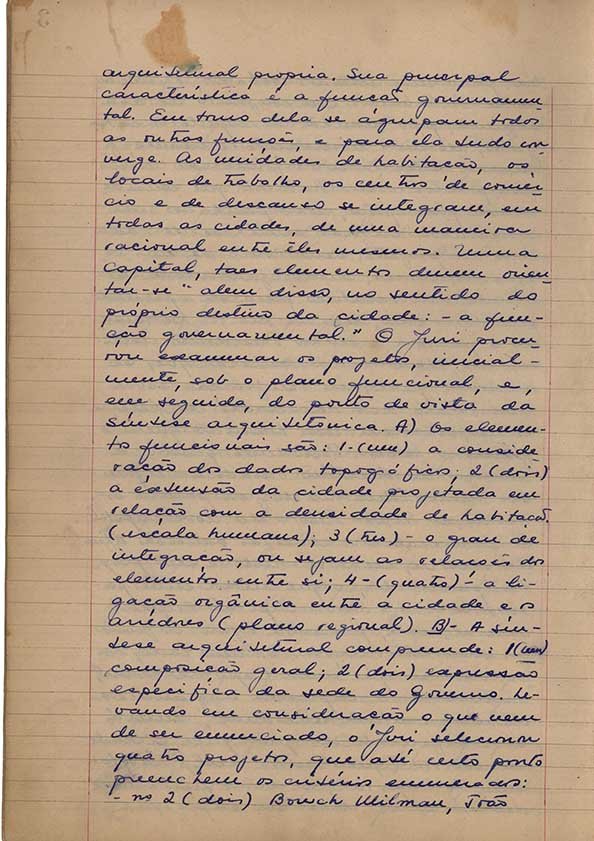 arquitetural propria. Sua principal
característica é a função governamen-
tal. Em torno dela se agrupam todos
as outras funções, e para ela tudo con-
verge. As unidades de habitação, os
locais de trabalho, os centros de comér-
cio e de descanso se integram, em
todas as cidades, de uma maneira
racional entre êles mesmos. Numa
Capital, taes elementos devem orien-
tar-se "alem disso, no sentido do
próprio destino da cidade: - a fun-
ção governamental." O Juri procu-
rou examinar os projetos, inicial-
mente, sob o plano funcional, e,
em seguida, do ponto de vista da
síntese arquitetônica. A) Os elemen-
tos funcionais são: 1-(um) a conside
ração dos dados topográficos; 2 (dois)
a extensão da cidade projetada em
relação com a densidade de habitação
(escála humana); 3 (tres) - o grau de
integração, ou sejam as relações dos
elementos entre si; 4 - (quatro) - a li-
gação orgânica entre a cidade e os
arredores (plano regional). B)- A sín-
tese arquitetural compreende: 1 (um)
composição geral; 2 (dois) expressão
específica da sede do Governo. Le-
vando em consideração o que vem
de ser enunciado, o Juri selecionou
quatro projetos, que até certo ponto
preenchem os critérios enumerados:
- no 2 (dois) Boruch Milman, João